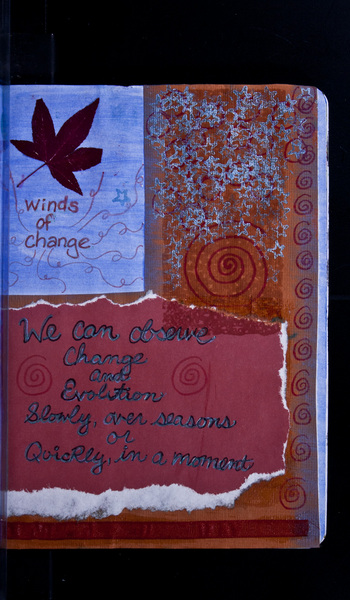 winds
of
change
We can observe
Change
and
Evolution
Slowly, over seasons
or
Quickly, in a moment